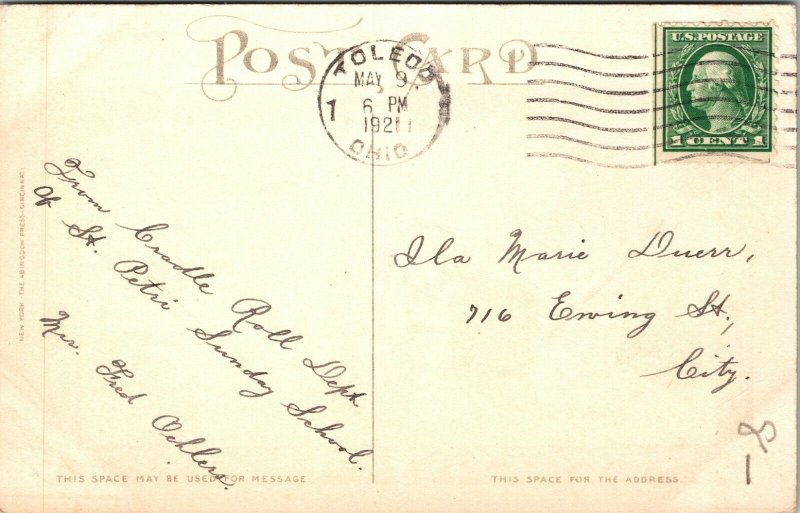 POST CARD
TOLEDO
MAY 9
6 PM
1921
OHIO
1
U.S. POSTAGE
1 CENT 1
From Cradle Roll Dept
of St. Petri Sunday School.
Mrs. Fred Oehlers.
Ila Marie Duerr,
716 Ewing St.,
City.
NEW YORK - THE ABINGDON PRESS - CINCINNATI
THIS SPACE MAY BE USED FOR MESSAGE
THIS SPACE FOR THE ADDRESS